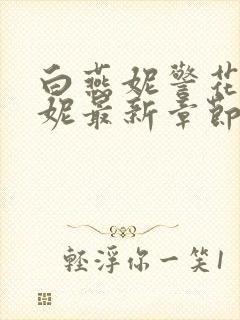 白燕妮警花
妮最新章節
輕浮你一笑1